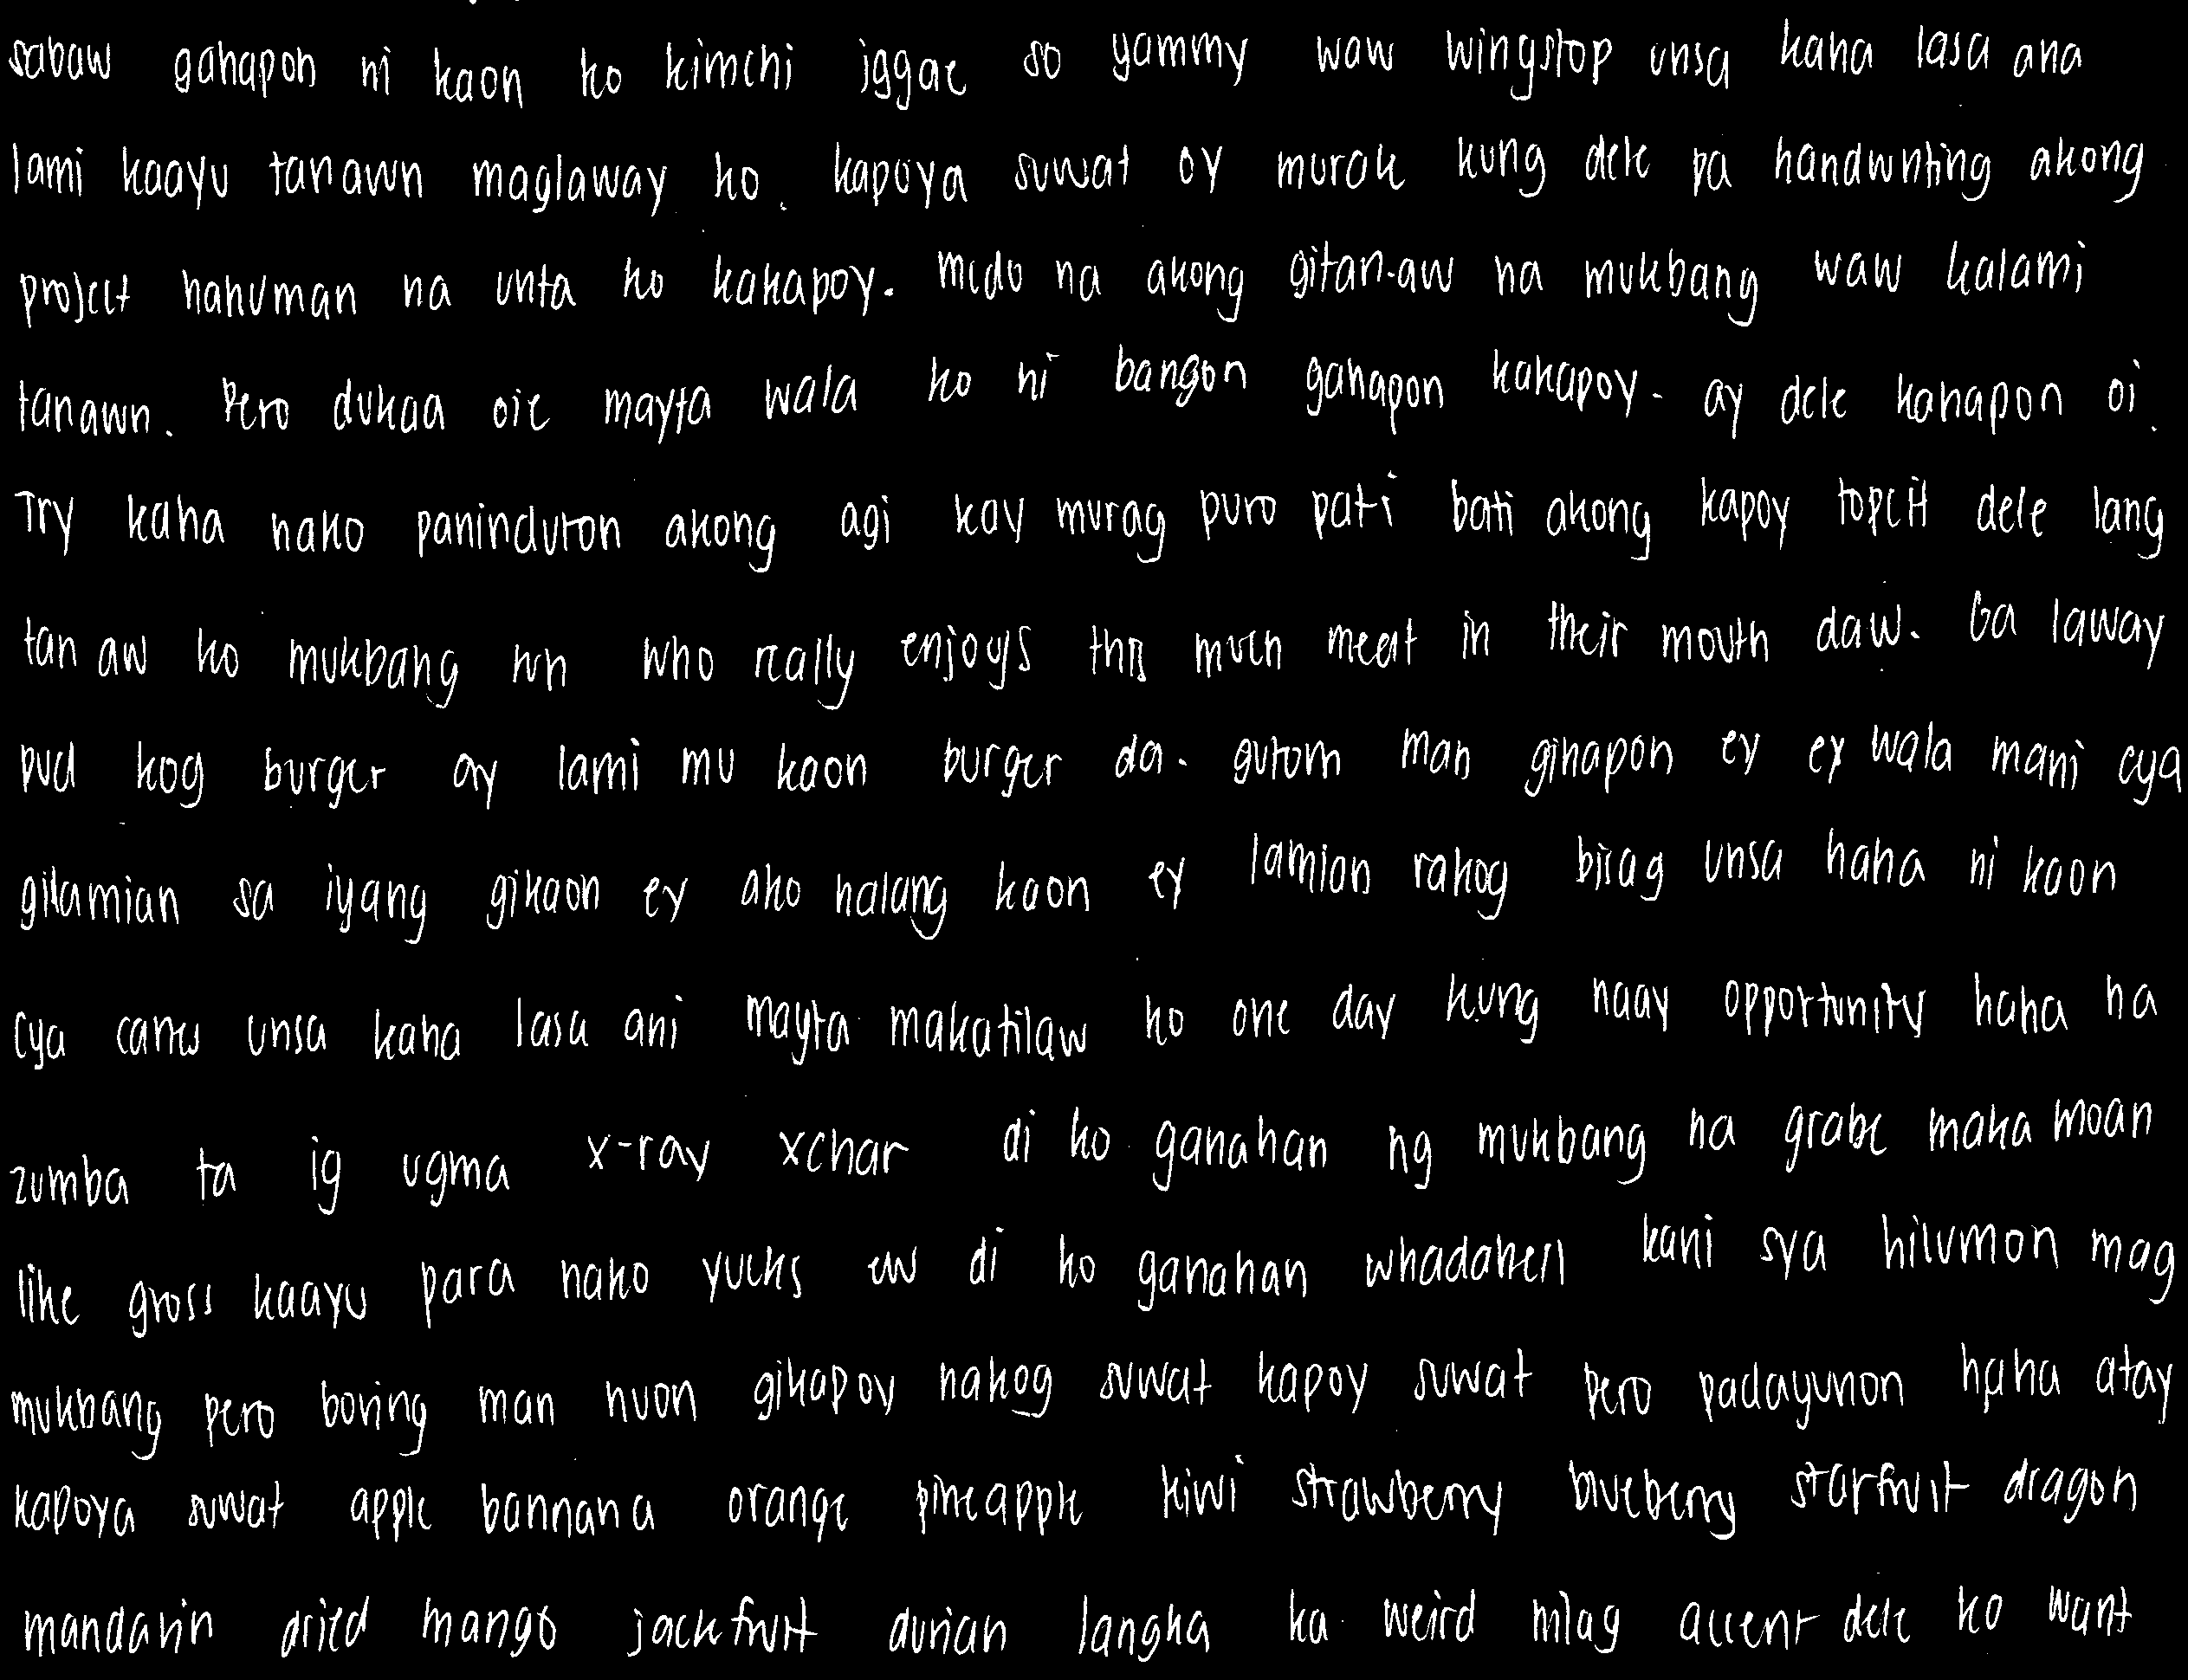 sabaw gahapon ni kaon ko kimchi jjggae so yammy waw wingstop unsa kaha lasa ana
lami kaayu tanawn maglaway ko. kapoya suwat oy murak kung dele pa handwriting akong
project hahuman na unta ko kakapoy. medo na akong gitan-aw na mukbang waw kalami
tanawn. Pero dukaa oie mayta wala ko ni bangon gahapon kakapoy. ay dele kahapon oi.
Try kaha nako paninduron akong agi kay murag puro pati bati akong kapoy topcit dele lang
tan aw ko mukbang run who really enjoys this much meat in their mouth daw. Ga laway
pud kog burger ay lami mu kaon burger da. gutom man gihapon ey ey wala mani cya
gilamian sa iyang gikaon ey ako halang kaon ey lamian rakog bisag unsa haha ni kaon
cya canes unsa kaha lasa ani mayta makatilaw ko one day kung naay opportunity haha ha
zumba ta ig ugma x-ray xchar di ko ganahan ng mukbang na grabe maka moan
like gross kaayu para nako yucks ew di ko ganahan whadahell kani sya hilumon mag
mukbang pero boring man nuon gikapoy nakog suwat kapoy suwat pero padayunon haha atay
kapoya suwat apple bannana orange pineapple kiwi strawberry blueberry starfruit dragon
mandarin dried mango jackfruit durian langka ka weird mlag accent dele ko want